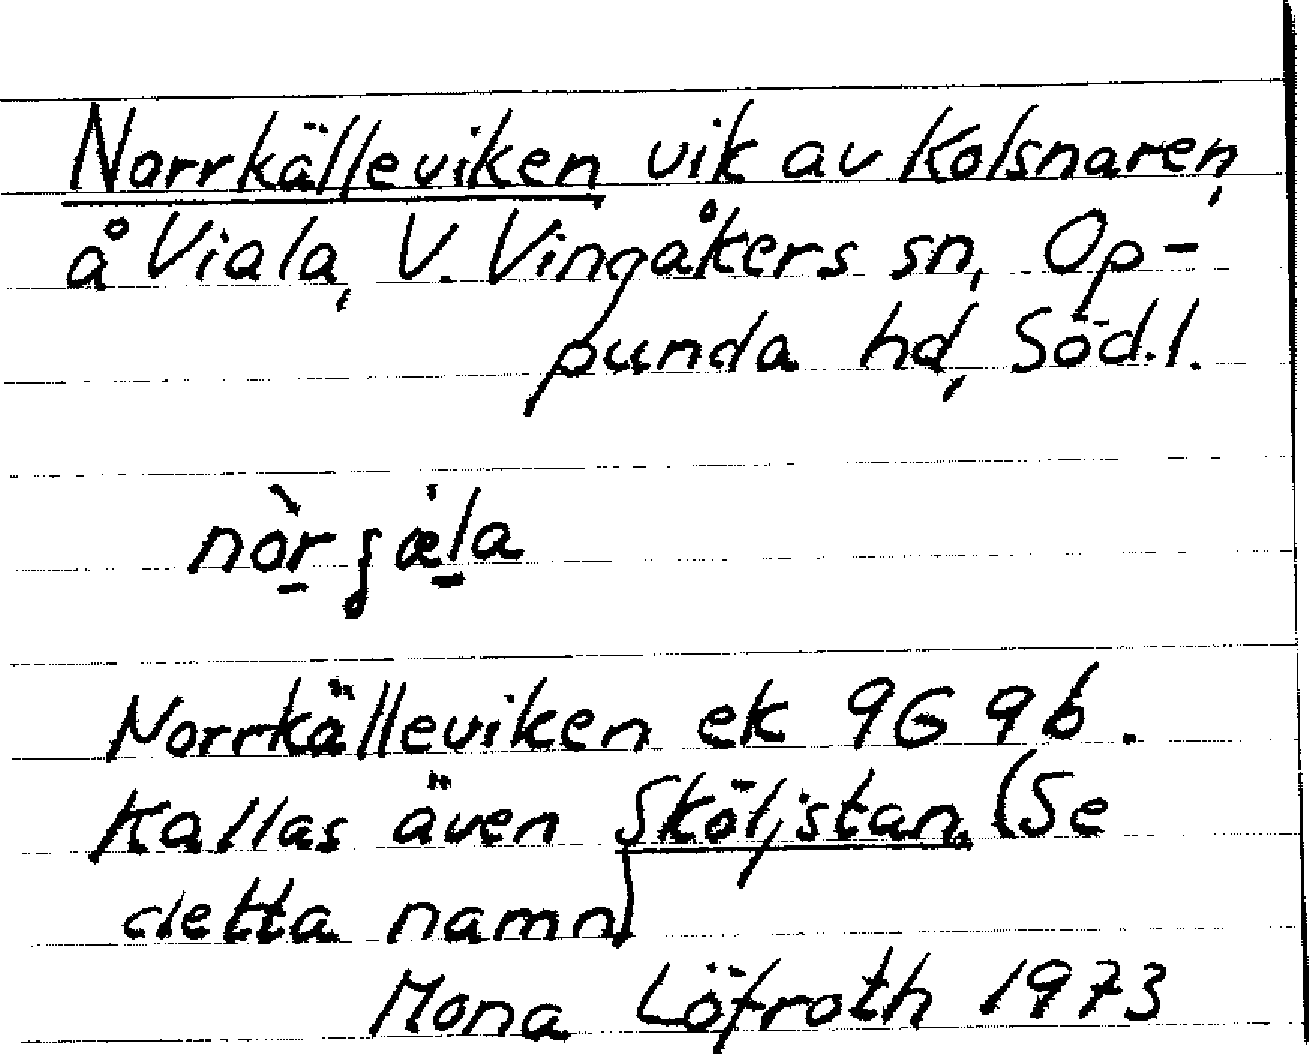 Norrkälleviken vik av Kolsnaren,
å Viala, V. Vingåkers sn, Op-
punda hd, Söd.l.
Norrkälleviken ek 9G 9b.
Kallas även Sköljstan. (Se
detta namn)
Mona Löfroth 1973